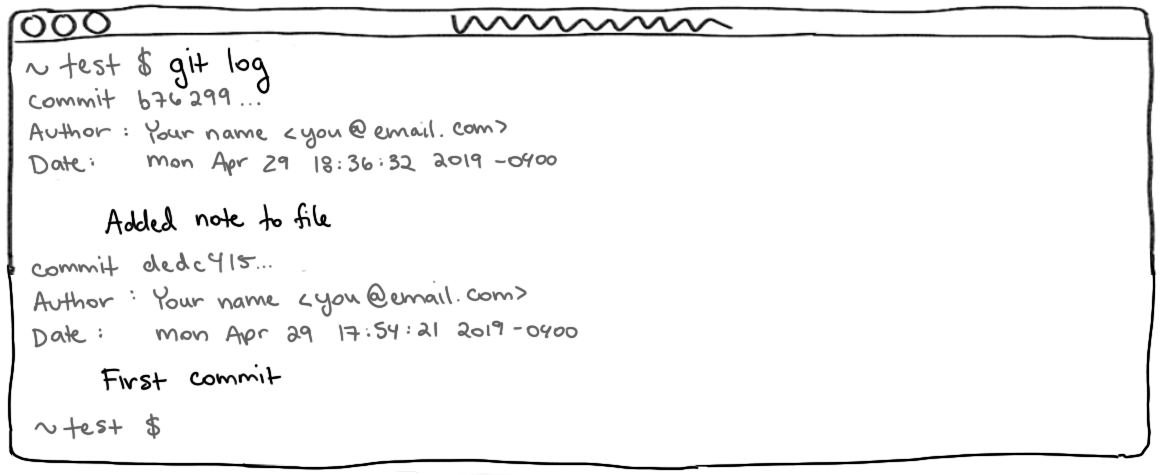 ~ test $ git log
commit b76299...
Author: Your name <you@email.com>
Date: Mon Apr 29 18:36:32 2019 -0400
Added note to file
commit dedc415...
Author: Your name <you@email.com>
Date: Mon Apr 29 17:54:21 2019 -0400
First commit
~ test $